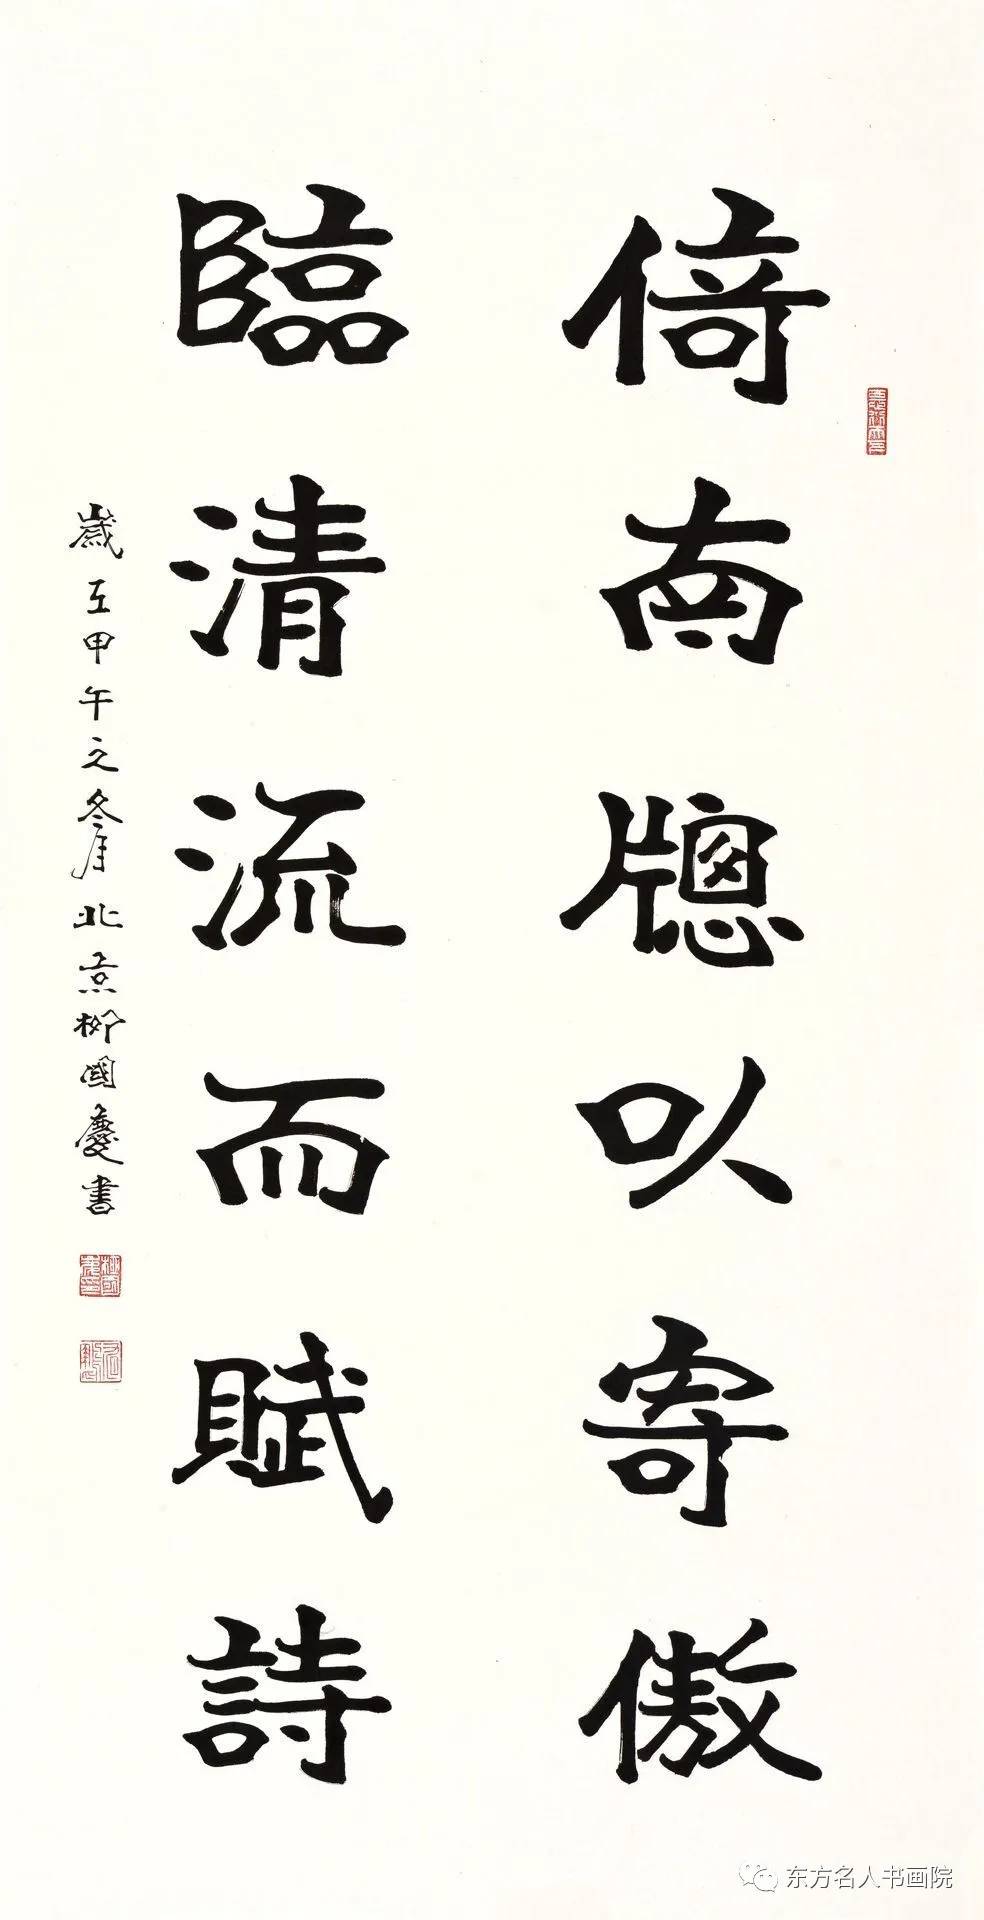 倚南牕以寄傲
臨清流而賦詩
歲在甲午之冬月北京柳國慶書
东方名人书画院